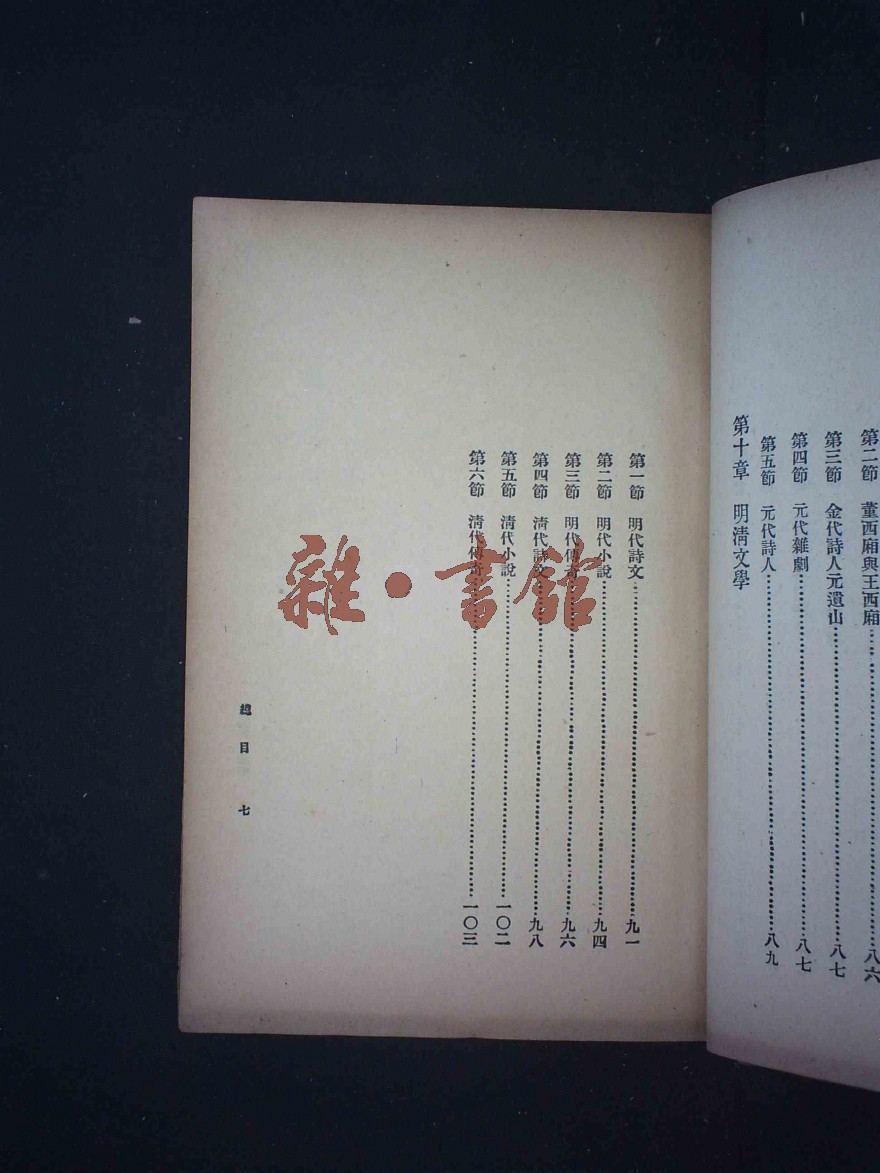 第二節　董西廂與王西廂……八六
第三節　金代詩人元遺山……八七
第四節　元代雜劇……八七
第五節　元代詩人……八九
第十章　明清文學
第一節　明代詩文……九一
第二節　明代小說……九四
第三節　明代傳奇……九六
第四節　清代詩文……九八
第五節　清代小說……一〇二
第六節　清代傳奇……一〇三
總目　七
雜·書館